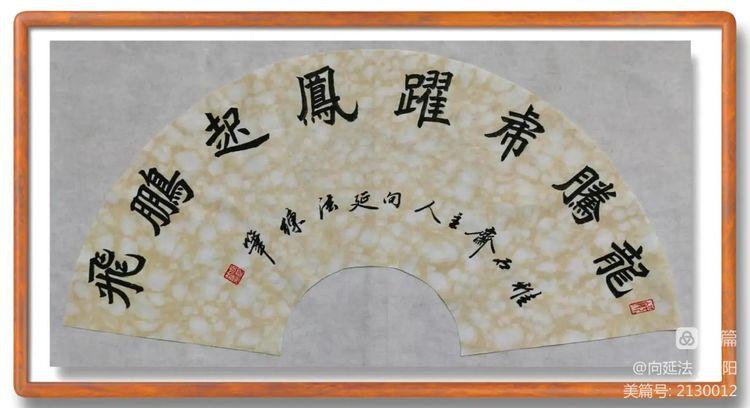 龍騰虎躍鳳起鵬飛
雅石齋主人向延法練筆
篇
@向延法 阳
美篇号: 2130012